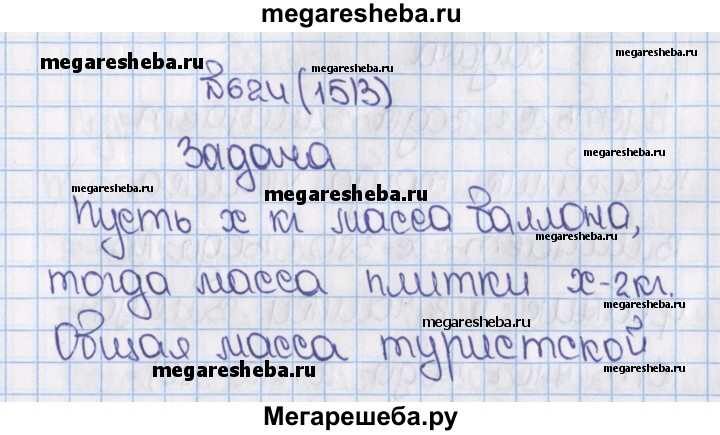 megaresheba.ru
megaresheba.ru
megaresheba.ru
megaresheba.ru
№624(1513)
megaresheba.ru
Задача
megaresheba.ru
megaresheba.ru
Пусть х кг масса баллона,
megaresheba.ru
тогда масса плитки х-2кг.
megaresheba.ru
Общая масса туристской
megaresheba.ru
megaresheba.ru
Мегарешеба.ру